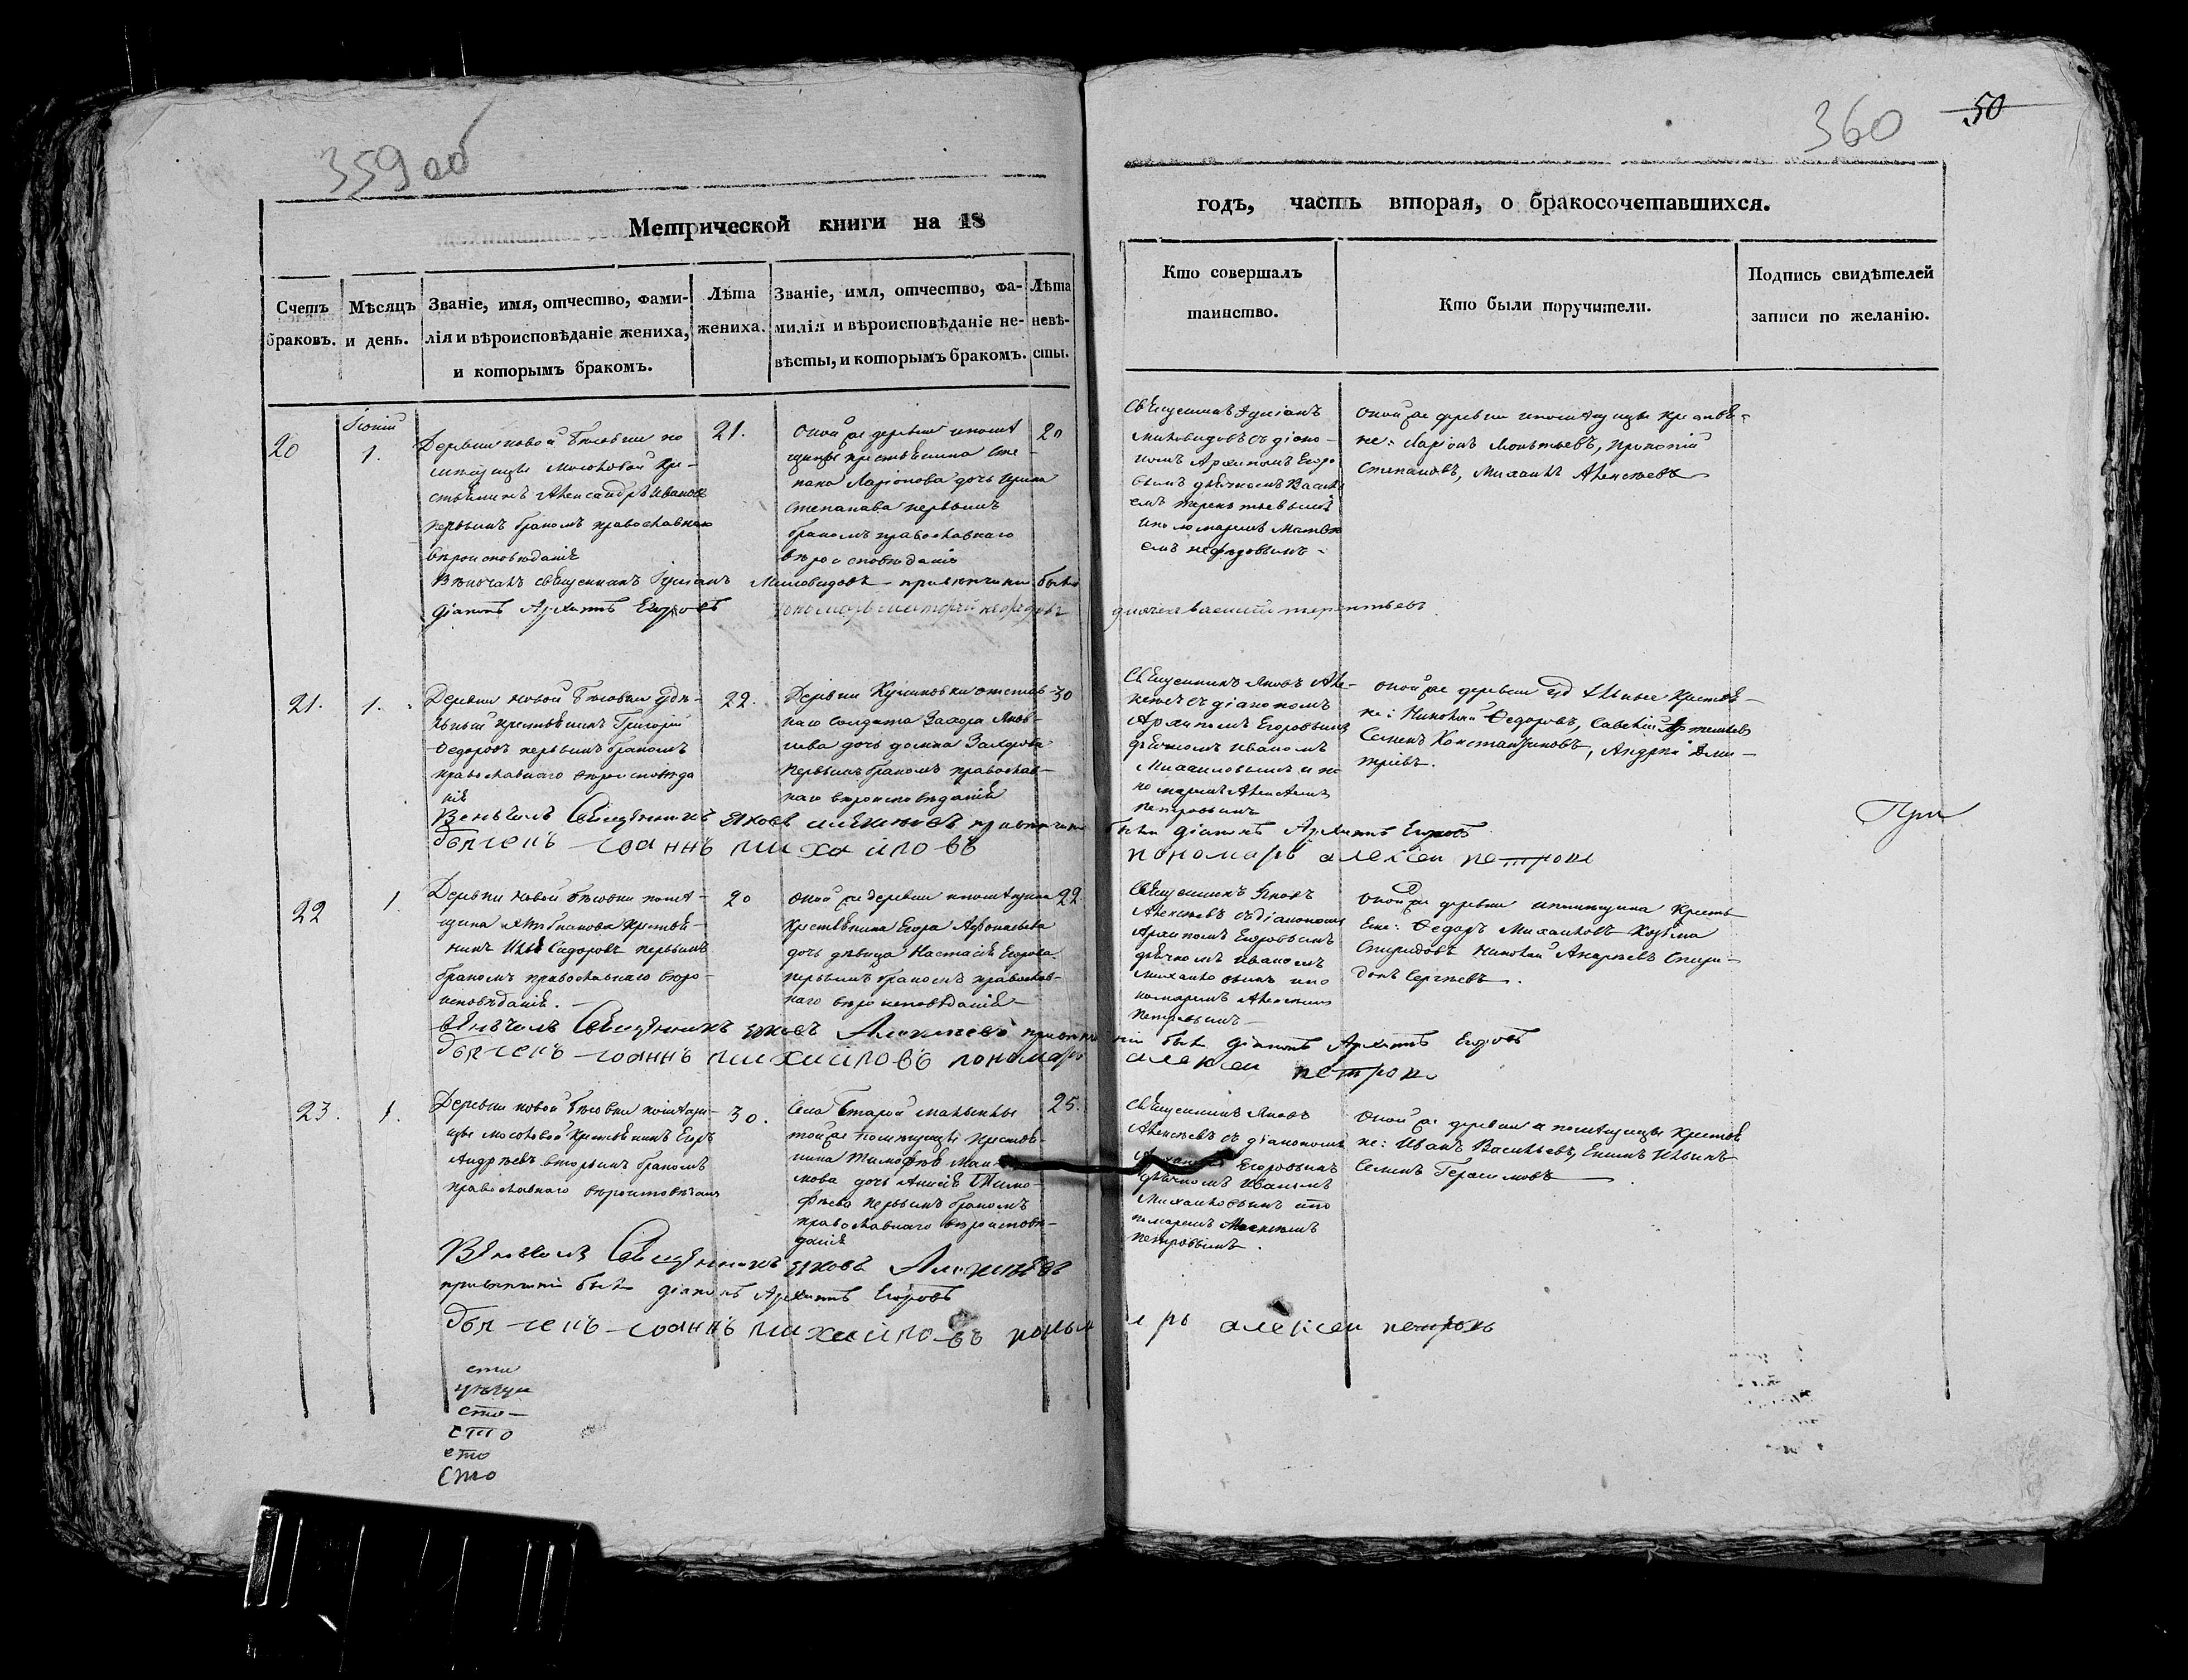 359 об
360
50
Метрической книги на 18
годъ, часть вторая, о бракосочетавшихся.
Счетъ браковъ.
Мѣсяцъ и день.
Званіе, имя, отчество, фами-
лія и вѣроисповѣданіе жениха,
и которымъ бракомъ.
Лѣта
жениха.
Званіе, имя, отчество, фа-
милія и вѣроисповѣданіе не-
вѣсты, и которымъ бракомъ.
Лѣта
невѣ-
сты.
Кто совершалъ
таинство.
Кто были поручители.
Подпись свидѣтелей
записи по желанію.
20
Іюній
1.
Деревни новой
крестьянинъ Александръ Иванов
первымъ бракомъ православнаго
вѣроисповѣданія
21.
оной же деревни
крестьянина Сте-
пана Ларіонова дочь Ирина
Степанава первымъ
бракомъ православнаго
вѣроисповѣданія
20
Священникъ Іуліанъ
Миловидовъ съ діако-
номъ Архипомъ Егоро
вымъ дьячкомъ Васил
емъ Терентьевымъ
и пономаремъ Матвѣ
емъ Нефедовымъ
оной же деревни крестья-
не: Ларіонъ Прокопій
Степановъ, Михаилъ Алексѣевъ
Вѣнчалъ священникъ Іуліанъ Миловидовъ при вѣнчаніи были
діаконъ Архипъ Егоровъ пономарь Матфей Нефедовъ
дьячекъ Василій Терентьевъ
21.
1.
Деревни новой удѣ-
льный крестьянинъ Григорій
Федоровъ первымъ бракомъ
православнаго вѣроисповѣда
нія
22.
Деревни отстав-
наго солдата Захара Яков-
лева дочь Домна Захарова
первымъ бракомъ православ-
наго вѣроисповѣданія
30
Священникъ Яковъ Але-
ксѣевъ съ діакономъ
Архипомъ Егоровымъ
дьячкомъ Иваномъ
Михаиловымъ и по
номаремъ Алексѣемъ
Петровымъ
оной же деревни удѣльные крестья-
не: Николай Федоровъ, Савелій Артемьев
Семенъ Константиновъ, Андрей Дми-
тріевъ.
Венчалъ Священникъ Яковъ Алексѣевъ при вѣнчаніи были діаконъ Архипъ Егоровъ
дьячекъ Іоаннъ Михаиловъ пономарь алексеи петровъ
При
22
1.
Деревни новой
крестья-
нинъ Сидоровъ первымъ
бракомъ православнаго вѣро-
исповѣданія.
20
оной же деревни
крестьянина Егора Афонасьева
дочь дѣвица Настасія Егорова
первымъ бракомъ православ-
наго вѣроисповѣданія
22
Священникъ Яковъ
Алексѣевъ съ діакономъ
Архипомъ Егоровымъ
дьячкомъ Иваномъ
Михаиловымъ и по
номаремъ Алексѣемъ
Петровымъ
оной же деревни кресть
яне: Федоръ Михаиловъ Козьма
Спиридовъ Николай Андреевъ Спири-
донъ Сергѣевъ.
Вѣнчалъ Священникъ Яковъ Алексѣевъ при вѣнчаніи были діаконъ Архипъ Егоровъ
дьячекъ Іоаннъ Михаиловъ пономарь алексеи петровъ
23.
1.
Деревни новой
крестьянинъ Егоръ
Андреевъ вторымъ бракомъ
православнаго вѣроисповѣдан
30.
Села Старой
той же крестья-
нина Тимофѣя
дочь Анисія Тимо-
фѣева первымъ бракомъ
православнаго вѣроисповѣ-
данія
25.
Священникъ Яковъ
Алексѣевъ съ діакономъ
Архипомъ Егоровымъ
дьячкомъ Иваномъ
Михаиловымъ и по
номаремъ Алексѣемъ
Петровымъ.
оной же деревни крестья
не: Иванъ Васильевъ, Ильинъ
Семенъ Герасимовъ
Вѣнчалъ Священникъ Яковъ Алексѣевъ
при вѣнчаніи были діаконъ Архипъ Егоровъ
дьячекъ Іоаннъ Михаиловъ пономарь алексеи петровъ
сто
сто
сто
сто